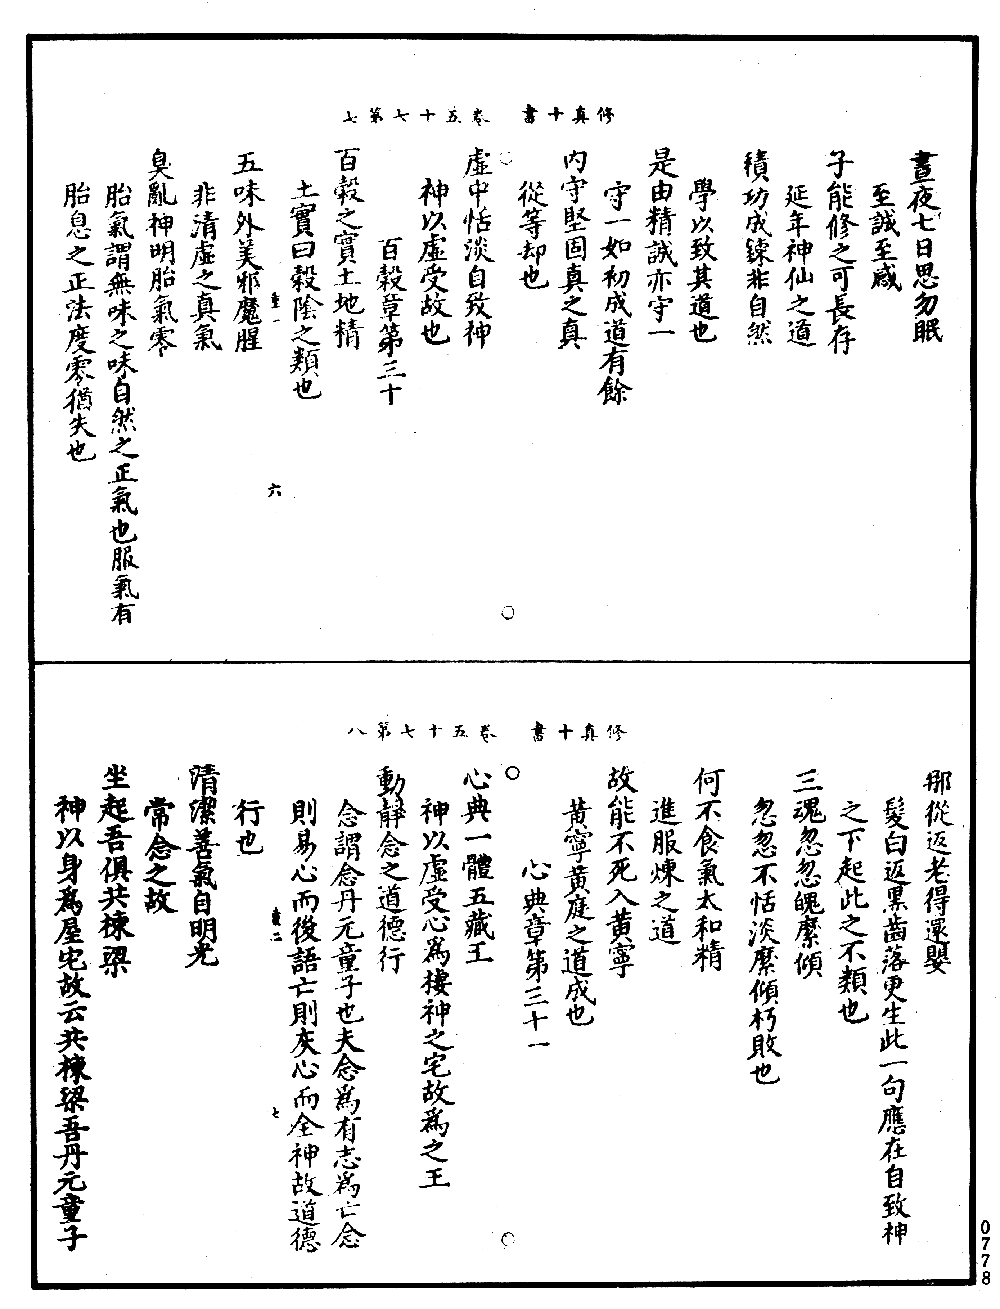 修真十書　卷五十七第七
晝夜七日思勿眠
至誠至感
子能修之可長存
延年神仙之道
積功成鍊非自然
學以致其道也
是由精誠亦守一
守一如初成道有餘
內守堅固真之真
從等却也
虛中恬淡自致神
神以虛受故也
百穀章第三十
百穀之實土地精
土實曰穀陰之類也
五味外美邪魔腥
非清虛之真氣
臭亂神明胎氣零
胎氣謂無味之味自然之正氣也服氣有
胎息之正法度零猶失也
六
修真十書　卷五十七第八
那從返老得還嬰
髮白返黑齒落更生此一句應在自致神
之下起此之不類也
三魂忽忽魄縻傾
忽忽不恬淡縻傾朽敗也
何不食氣太和精
進服煉之道
故能不死入黃寧
黃寧黃庭之道成也
心典章第三十一
心典一體五藏王
神以虛受心為棲神之宅故為之王
動靜念之道德行
念謂念丹元童子也夫念為有志為亡念
則易心而後語亡則灰心而全神故道德
行也
清潔善氣自明光
常念之故
坐起吾俱共棟梁
神以身為屋宅故云共棟梁吾丹元童子
七
0778